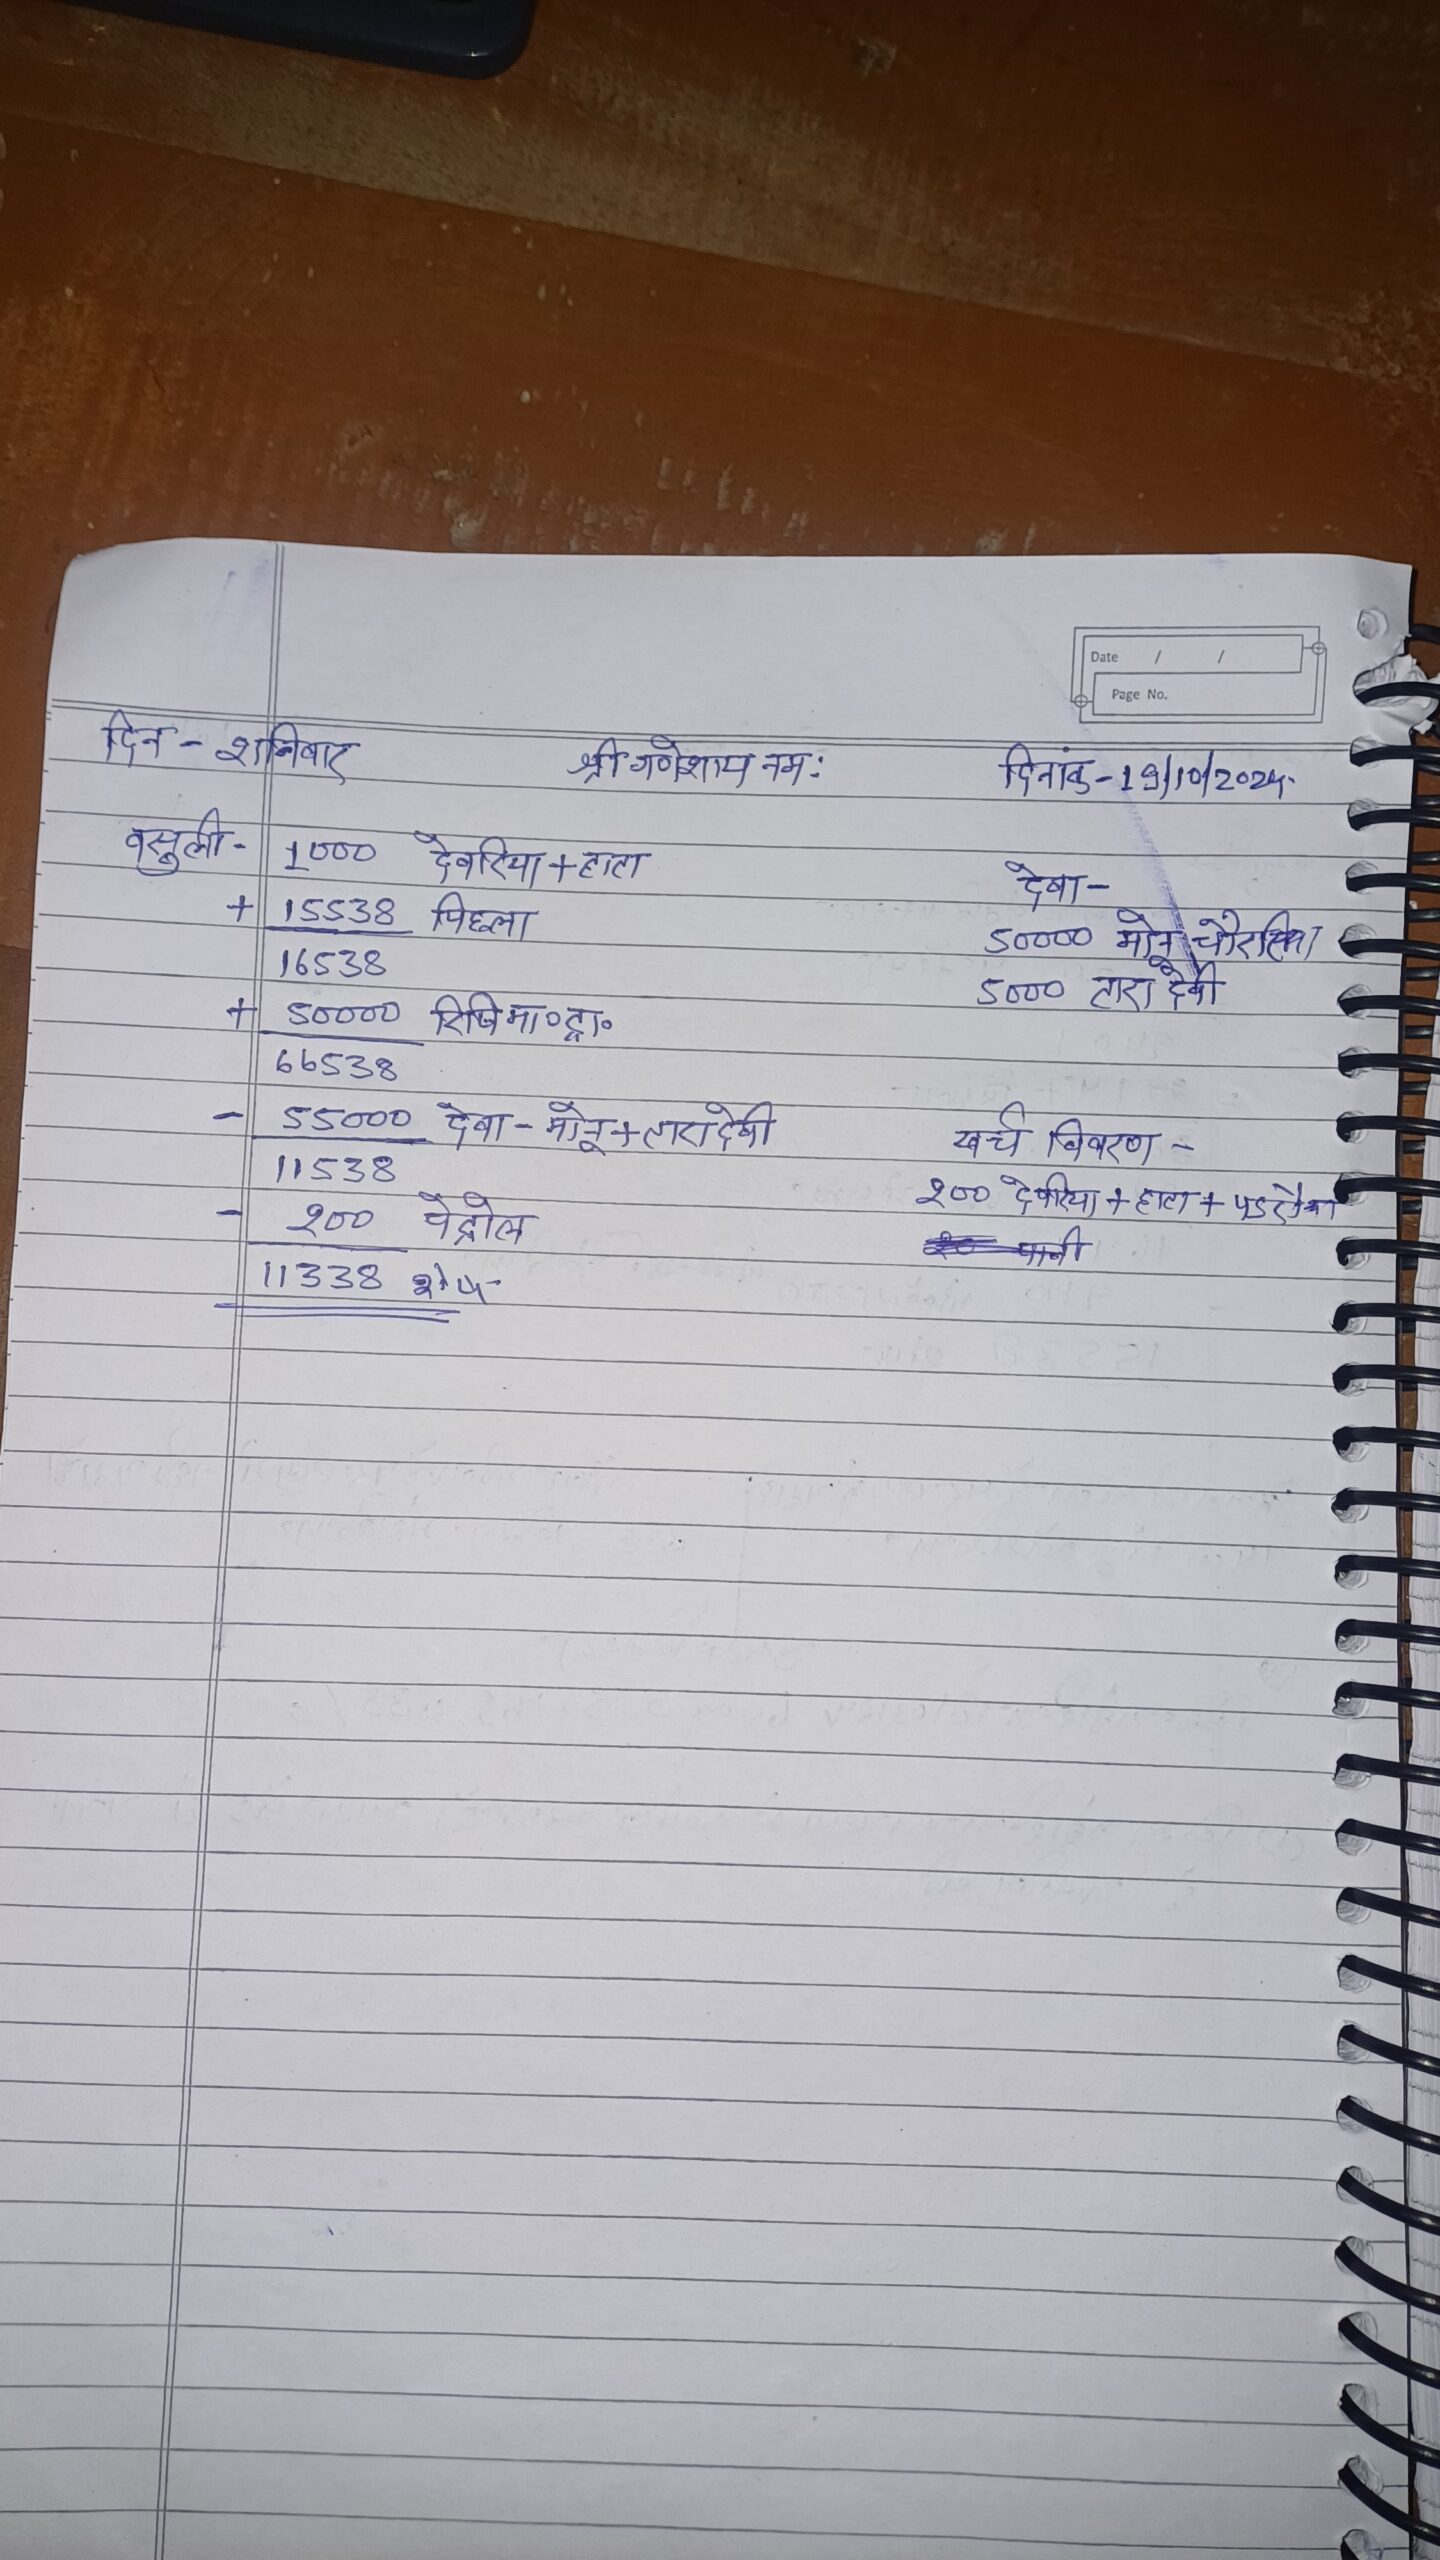 Date / /
Page No.
दिन - शनिवार श्री गणेशाय नमः दिनांक - 19/10/2024
वसुली - 1000 देवरिया + हाटा
+ 15538 पिछला
16538
+ 50000 रिषि मा० द्वा०
66538
- 55000 देवा - मोनू + तारा देवी
11538
- २00 पेट्रोल
11338 शेष
देवा -
50000 मोनू चौरसिया
5000 तारा देवी
खर्च विवरण -
२00 देवरिया + हाटा +
पानी